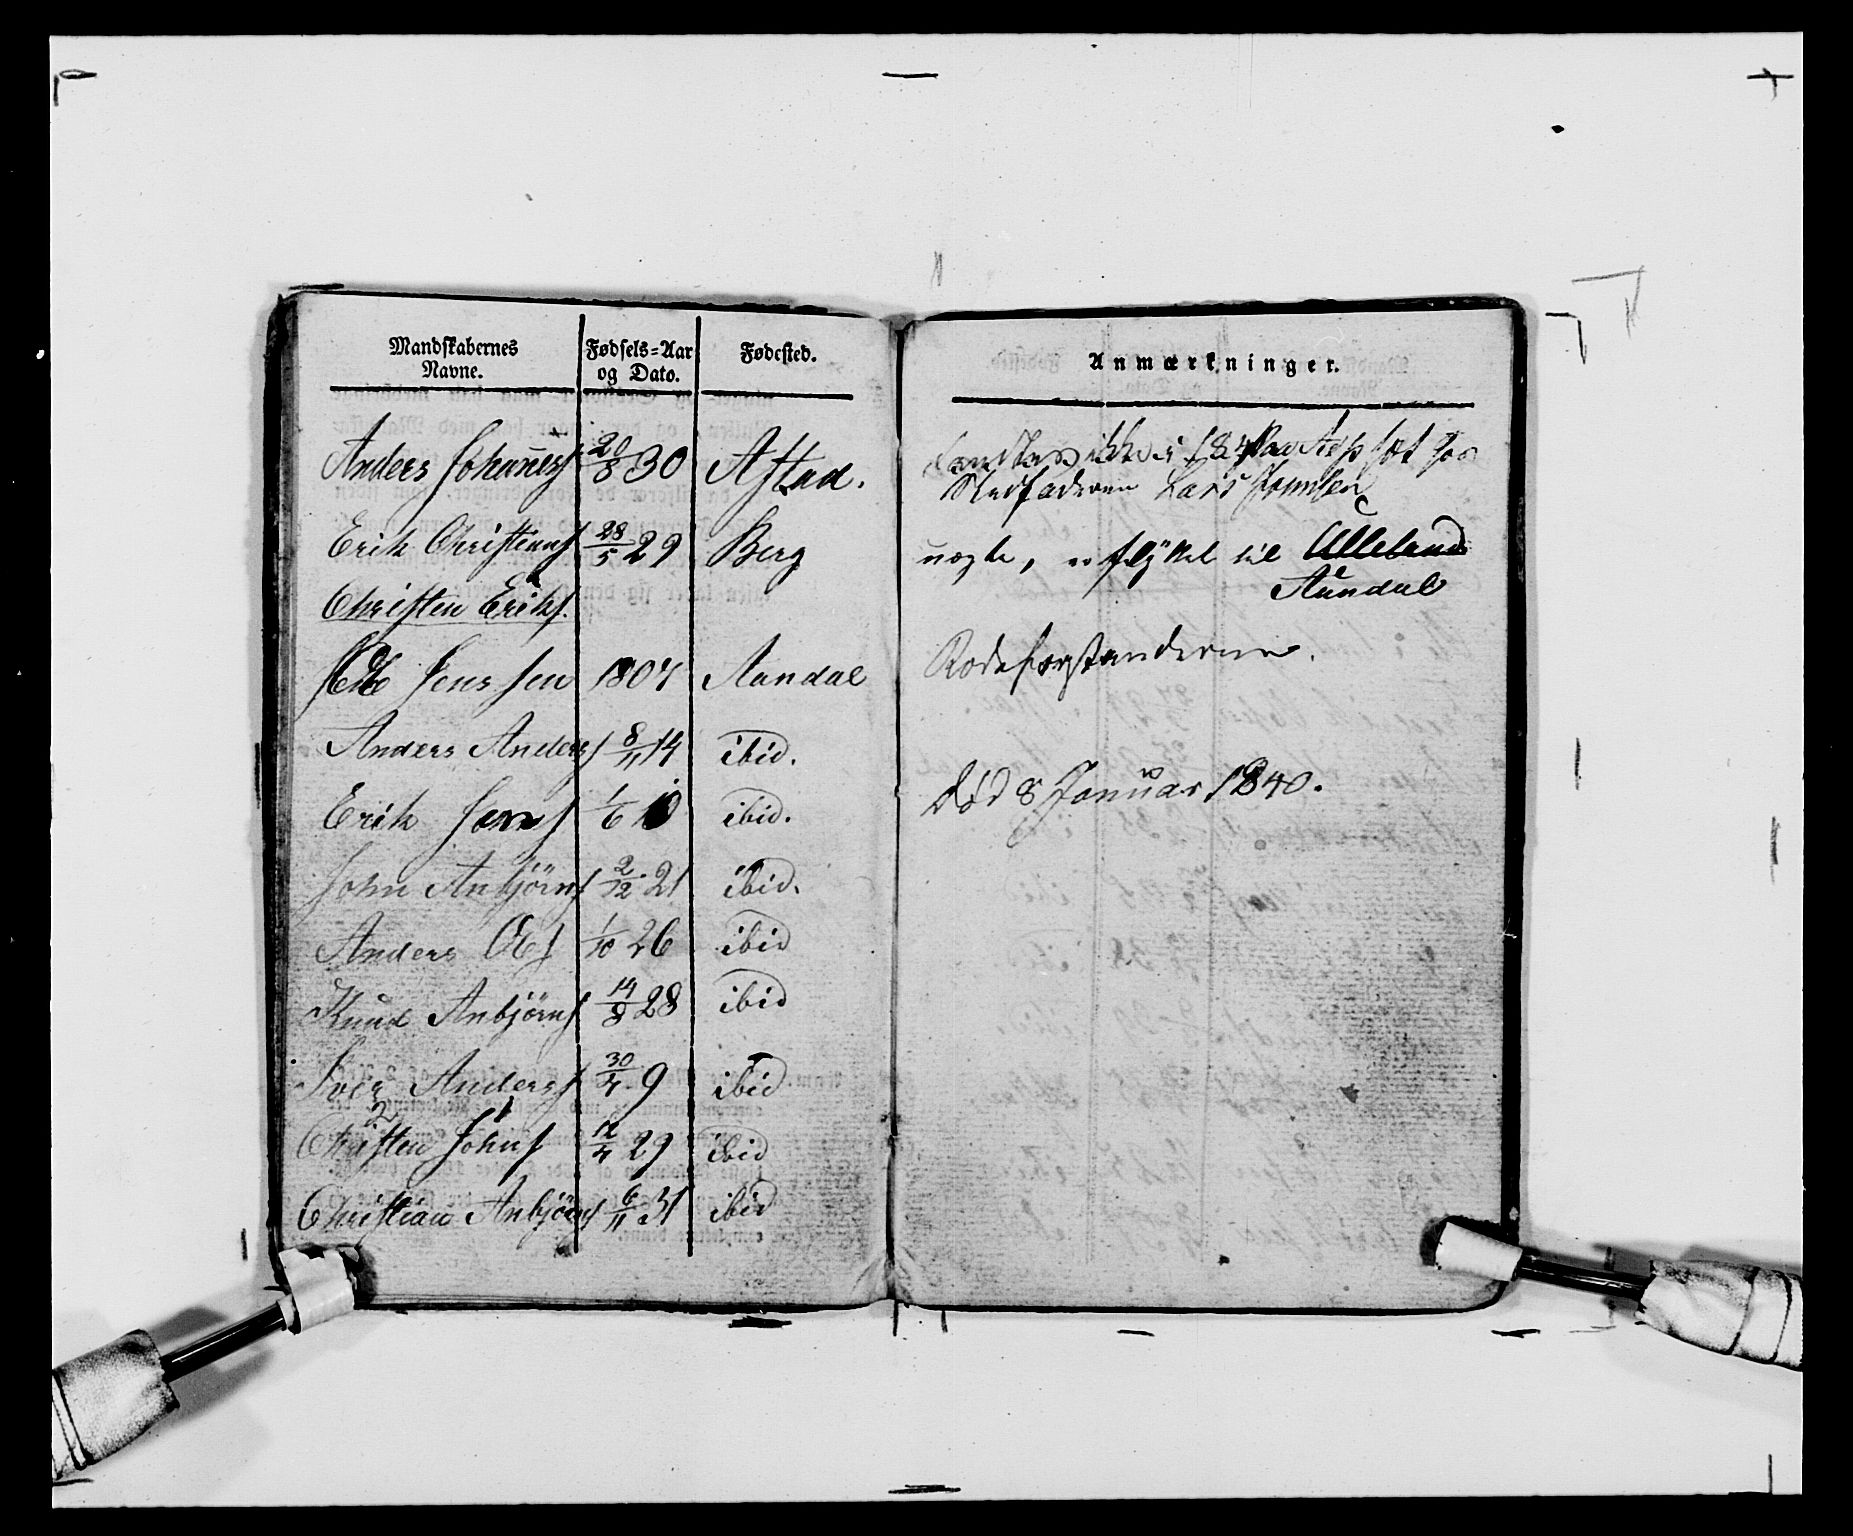 Mandskabernes
Navne.
Fødsels=Aar
og Dato.
Fødested.
Anders Johannes 20/8 30 Astad.
Erik Christians 28/5 29 Berg
Christen Eriks.
Ole Jenssen 1807 Aandal
Anders Anders 8/11 14 ibid.
Erik Jens 1/6 10 ibid.
John Anbjörns 2/12 21 ibid.
Anders Ols 1/10 26 ibid
Knud Anbjörns 14/8 28 ibid
Iver Anders 30/4 9 ibid
Christen Johns 12/4 29 ibid
Christian Anbjörns 6/11 31 ibid
Anmærkninger.
ikke i
Stedfaderen Lars
nogle, er flÿttet til Ulleland
Aandal
Rodeforstanderen.
død 8 Januar 1840.